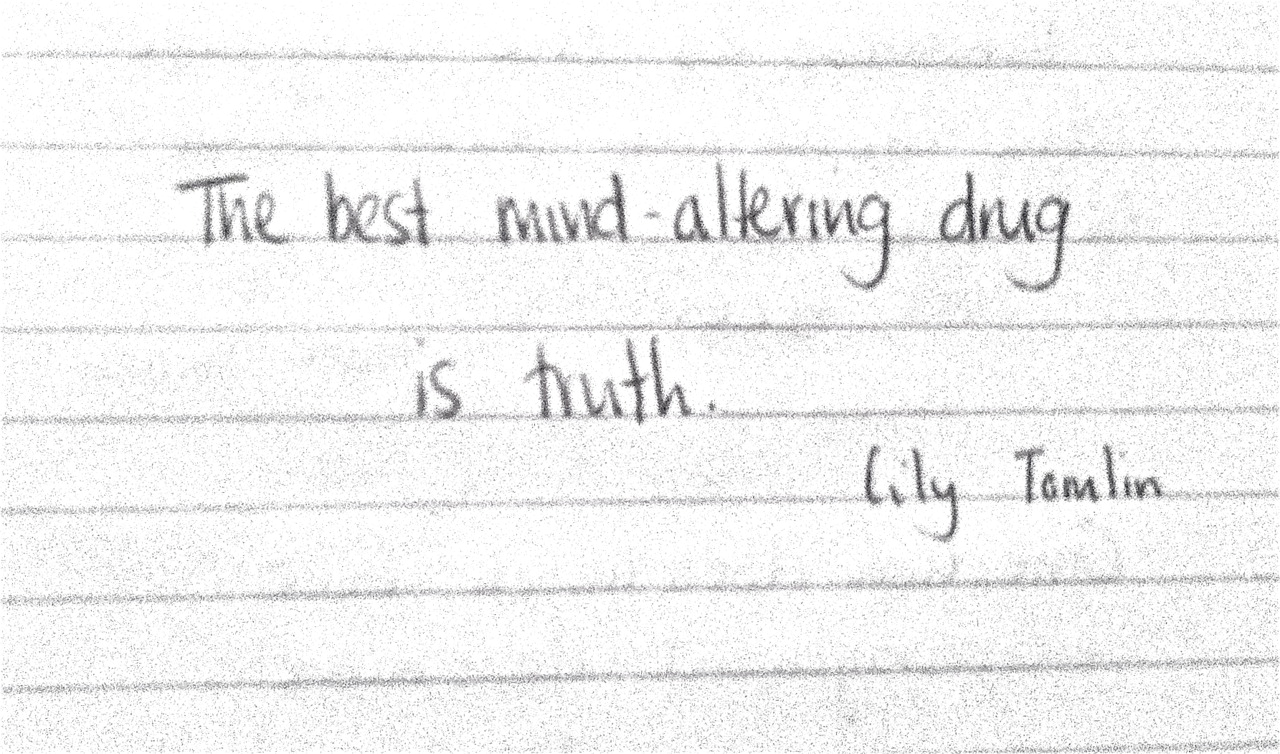 The best mind-altering drug
is truth.
Lily Tomlin